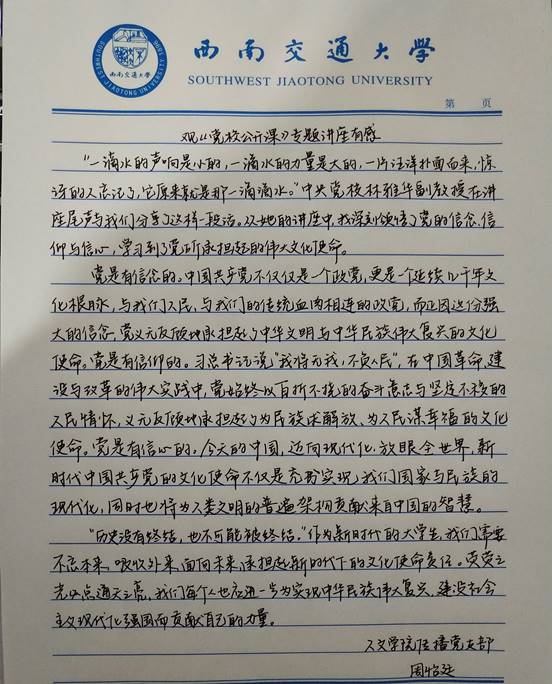 西南交通大学
SOUTHWEST JIAOTONG UNIVERSITY
第 页
观《党校公开课》专题讲座有感
“一滴水的声响是小的，一滴水的力量是大的，一片汪洋扑面而来，惊
讶的人忘记了，它原来就是那一滴滴水。”中央党校林雅华副教授在讲
座尾声与我们分享了这样一段话。从她的讲座中，我深刻领悟了党的信念、信
仰与信心，学习到了党所承担起的伟大文化使命。
党是有信念的。中国共产党不仅仅是一个政党，更是一个延续几千年文
化根脉，与我们人民、与我们的传统血肉相连的政党，而正因这份强
大的信念，党义无反顾地承担起了中华文明与中华民族伟大复兴的文化
使命。党是有信仰的。习总书记说“我将无我，不负人民”，在中国革命、建
设与改革的伟大实践中，党始终以百折不挠的奋斗意志与坚定不移的
人民情怀，义无反顾地承担起了为民族求解放、为人民谋幸福的文化
使命。党是有信心的。今天的中国，迈向现代化，放眼全世界，新
时代中国共产党的文化使命不仅是充分实现我们国家与民族的
现代化，同时也将为人类文明的普遍架构贡献来自中国的智慧。
“历史没有终结，也不可能被终结。”作为新时代的大学生，我们需要
不忘本来、吸收外来、面向未来，承担起新时代下的文化使命责任。荧荧之
光必点通天之亮，我们每个人也应进一步为实现中华民族伟大复兴、建设社会
主义现代化强国而贡献自己的力量。
人文学院传播党支部
周怡廷